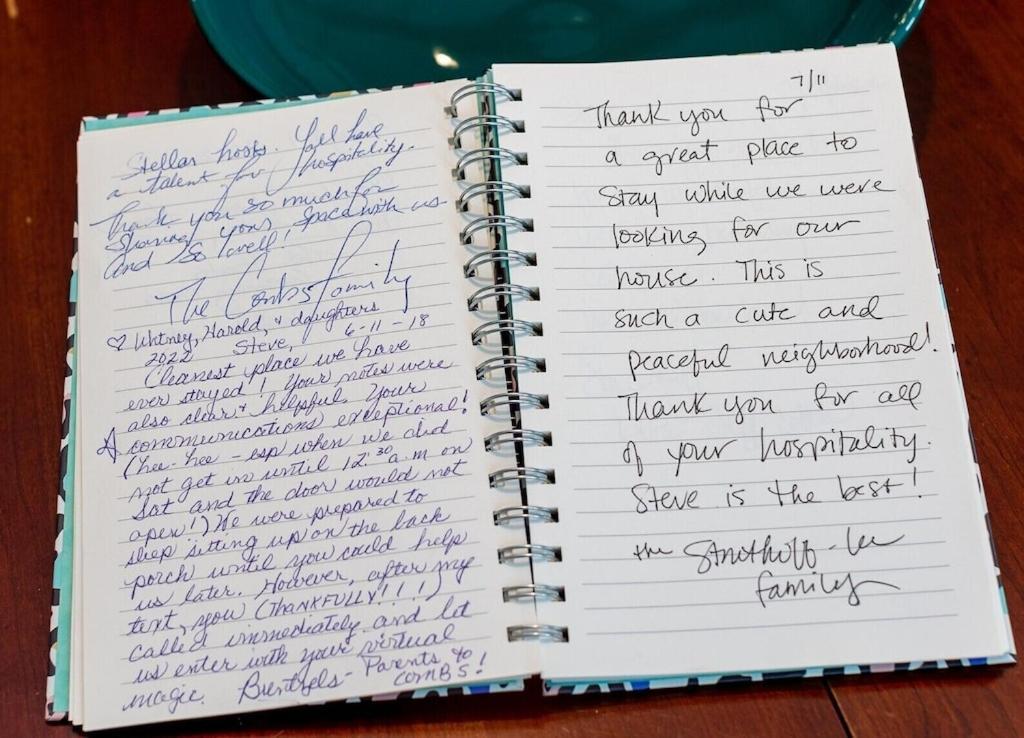 Stellar hosts. Yall have
a talent for hospitality.
Thank you so much for
sharing your space with us
and so well!
The Combs Family
♡ Whitney, Harold, & daughters
2022 Steve, 6-11-18
Cleanest place we have
ever stayed! Your notes were
also clear & helpful. Your
☆ communications exceptional!
(hee-hee - esp when we did
not get in until 12:30 a.m on
Sat and the door would not
open!) We were prepared to
sleep sitting up on the back
porch until you could help
us later. However, after my
text, you (THANKFULLY!!!!)
called immediately and let
us enter with your virtual
magic. - Parents to
COMBS!
7/11
Thank you for
a great place to
stay while we were
looking for our
house. This is
such a cute and
peaceful neighborhood!
Thank you for all
of your hospitality.
Steve is the best!
the -Lee
family